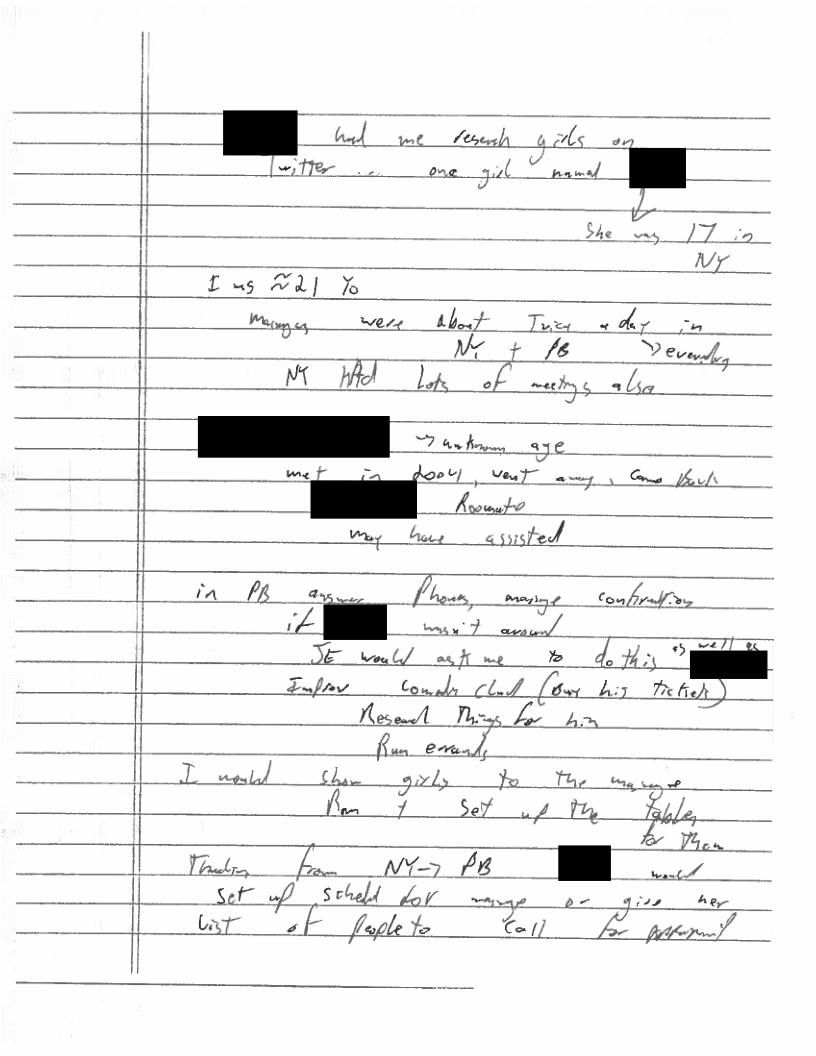 had me research girls on
Twitter ... one girl named
She was 17 in
NY
I was ≈ 21 Yo
Massages were about Twice a day in
NY + PB → everyday
NY HAd Lots of meetings also
→ unknown age
met in 2004, went away, came back
Roommate
may have assisted
in PB answer Phones, massage confirmation
if wasn't around
JE would ask me to do this as well as
Improv Comedy Club (Buy his tickets)
Research Things for him
Run errands
I would show girls to the massage
Rm + Set up The Tables
for Them
from NY → PB would
Set up schedul for massage or give her
List of People to call for